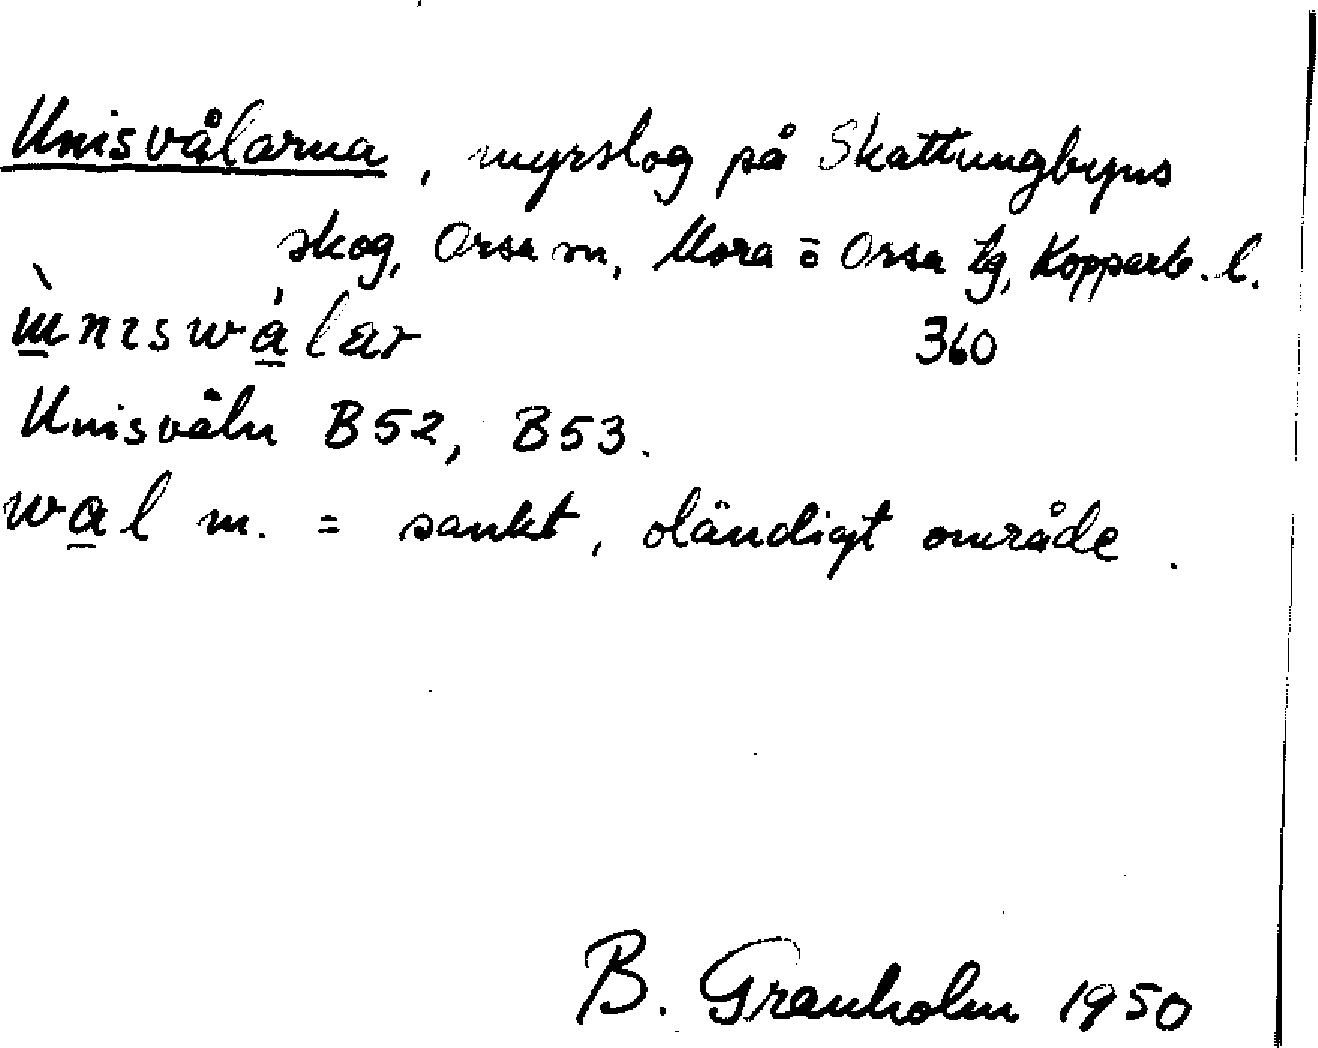 Unisvålarna, myrslog på Skattungbyns
skog, Orsa sn, Mora o Orsa tg, Kopparb. l.
ɯ̲̀nɪswa̲̍lar 360
Unisvåln B52, B53.
wa̲l m. = sankt, oländigt område.
B. Granholm 1950